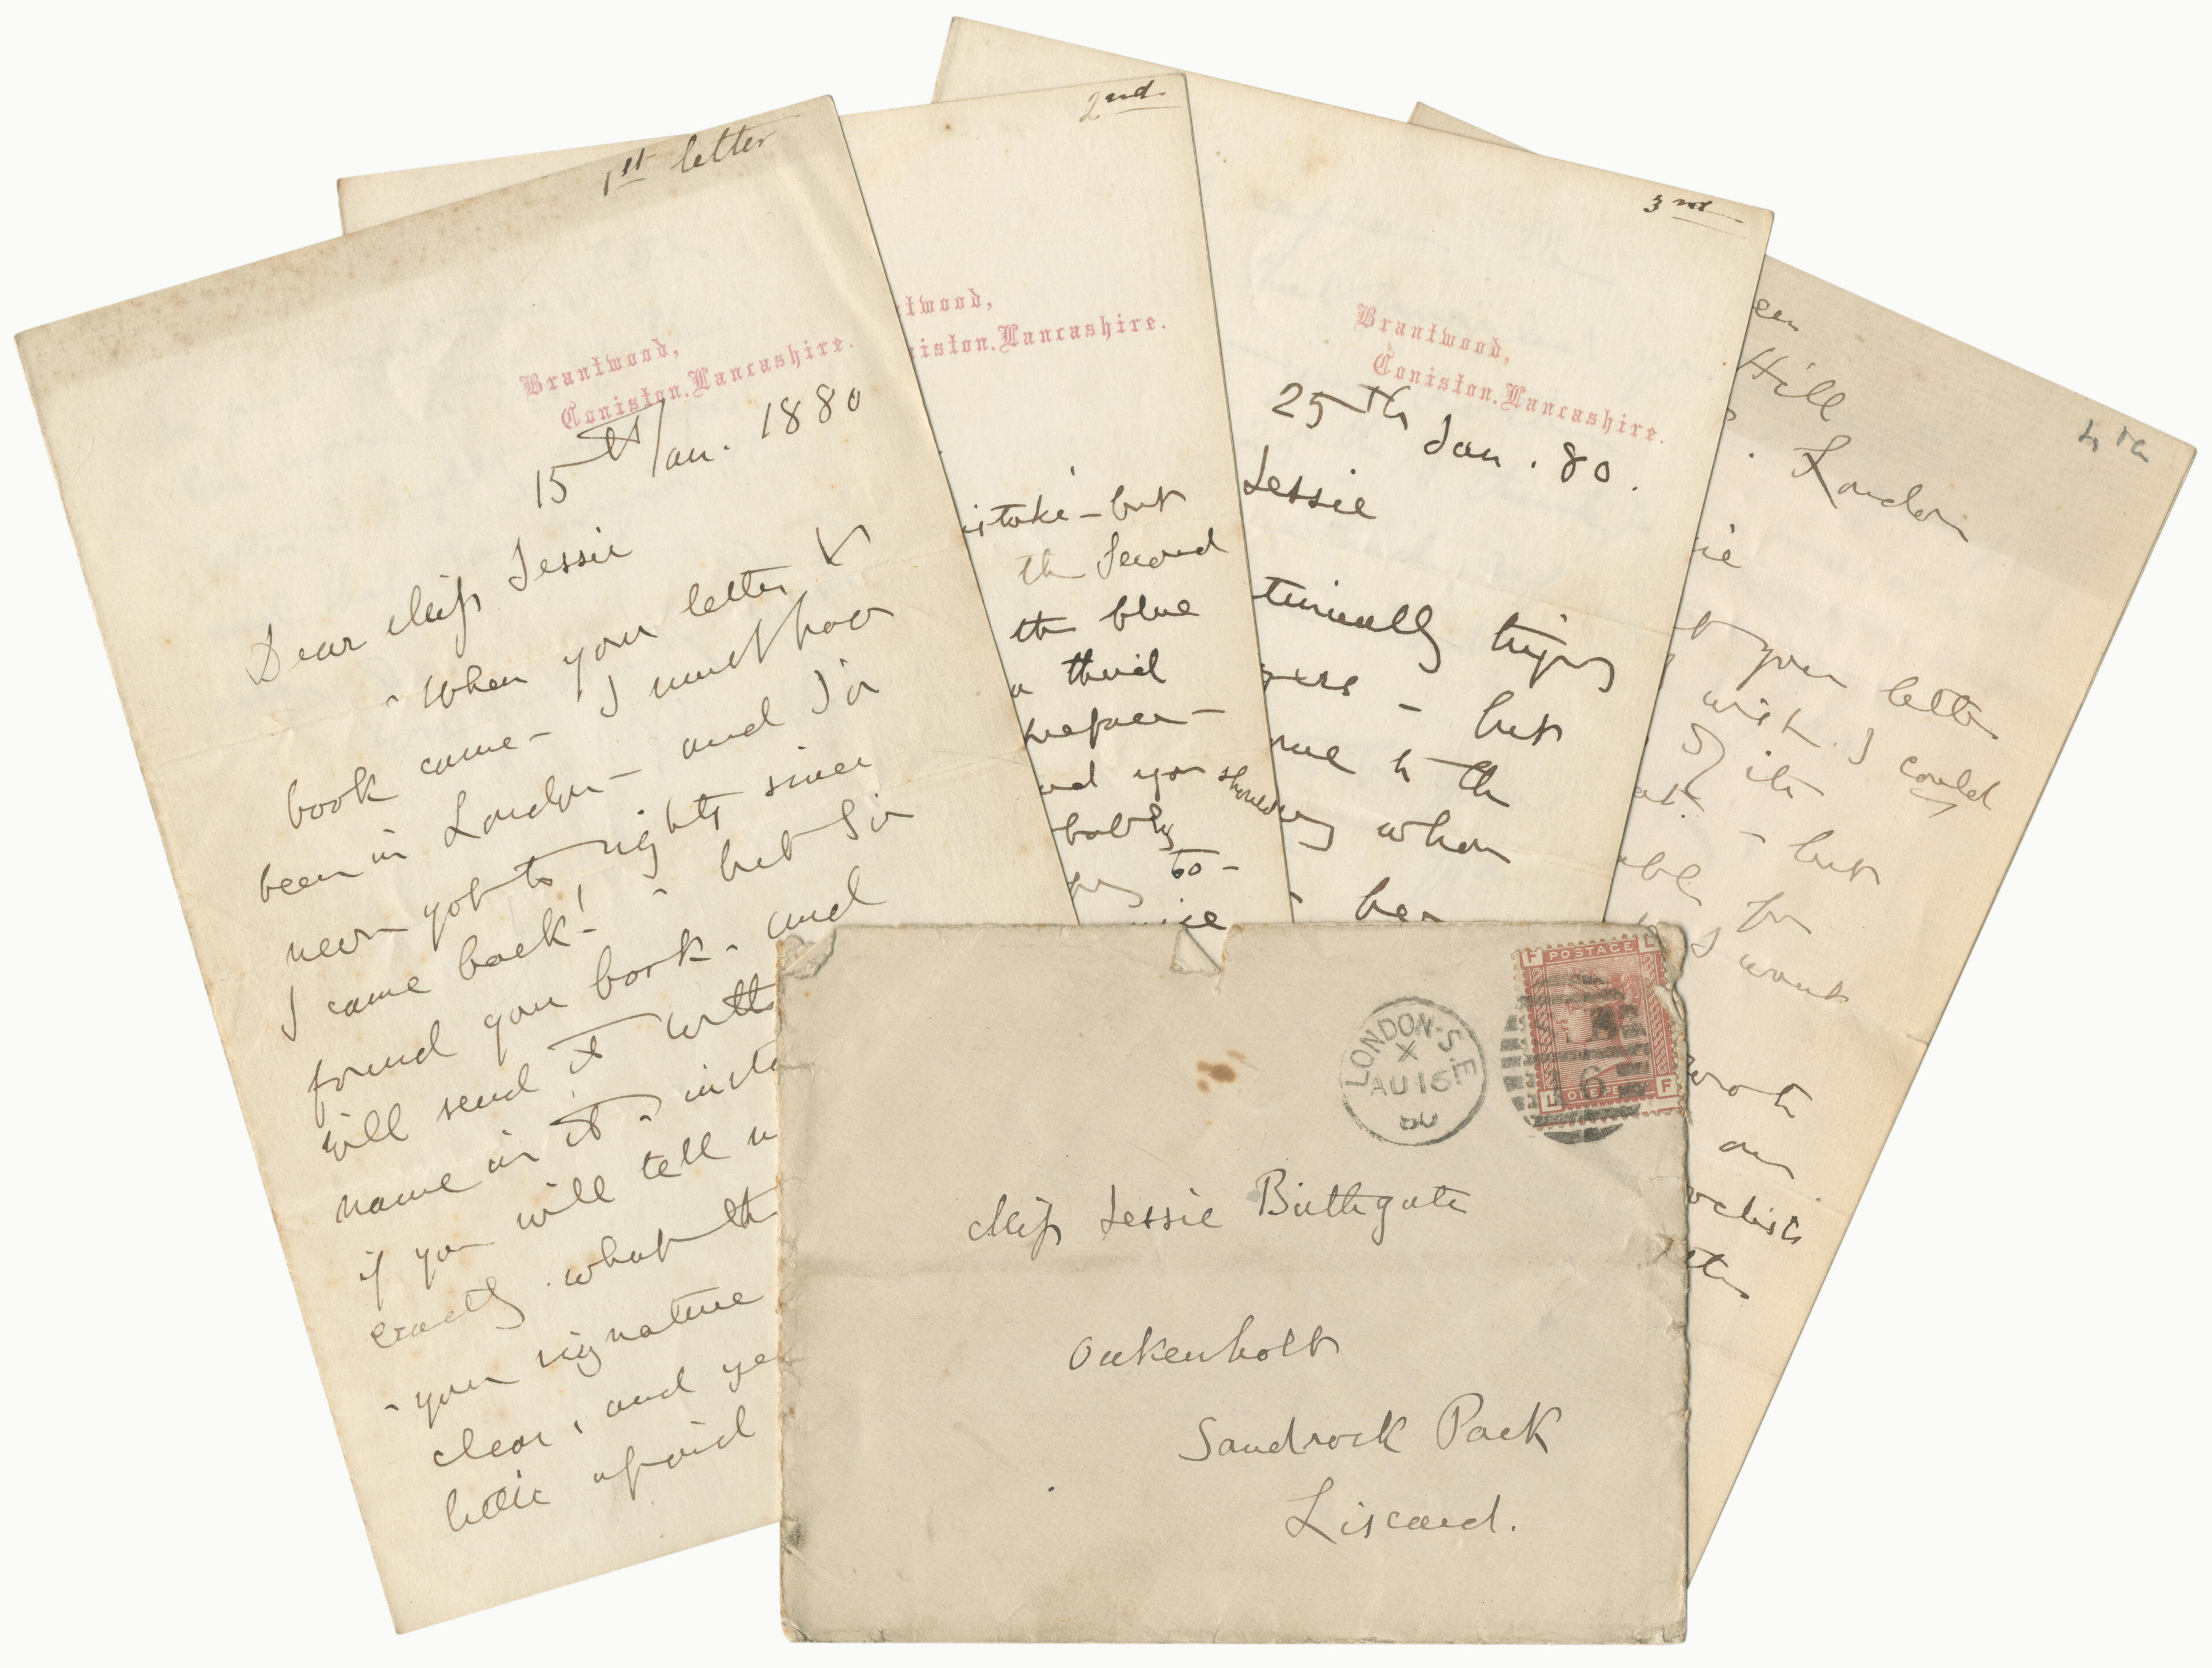 1st letter
Brantwood,
Coniston. Lancashire.
15th Jan. 1880
Dear Miss Jessie
When your letter &
book came - I must have
been in London - and I've
never got to rights since
I came back! - but I've
found your book - and
will send it with
name in it -
if you will tell
exactly what th
- your signature
clear, and ye
little afraid
2nd
twood,
iston. Lancashire.
istake - but
the second
the blue
a third
preface -
nd you should
bably
to -
ice
3rd
Brantwood,
Coniston. Lancashire.
25th Jan. 80.
Jessie
trying
- but
me to the
whom
her
4th
Hill
London
ie
your letter
wish I could
its
- but
for
I want
wrote
our
LONDON. S.E
X
AU 16
80
POSTAGE
F L
L F
Miss Jessie Bathgate
Oakenholt
Sandrock Park
Liscard.